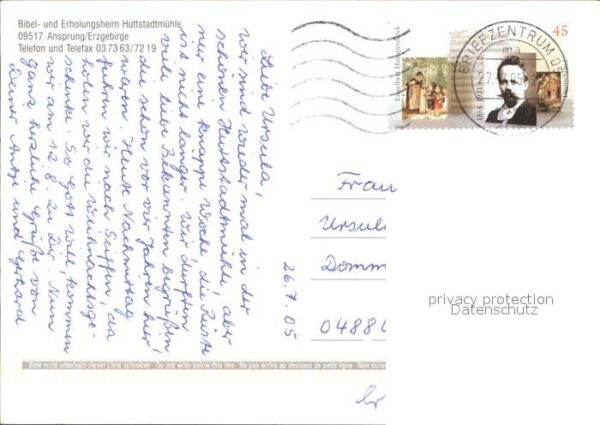 Bibel- und Erholungsheim Hüttstadtmühle
09517 Ansprung/Erzgebirge
Telefon und Telefax 03 73 63/72 19
Liebe Ursula,
wir sind wieder mal in der
schönen Hüttstadtmühle, aber
nur eine knappe Woche, die Küste
ist nicht länger. Wir durften
viele liebe Bekannten begrüßen
die schon vor vier Jahren hier
waren. Heute Nachmittag
fahren wir nach Seiffen, da
holen wir die Weihnachtsge-
schenke. So Gott will, kommen
wir am 12.8. zu Dir. Nun
ganz herzliche Grüße von
Deiner und Gerhard
26.7.05
45
Engelbert Humperdinck
1854-1921
BRIEFZENTRUM 0
ma
27. 05
Frau
Ursul
Domm
0488
privacy protection
Datenschutz
Bitte nicht unterhalb dieser Linie schreiben Do not write below this line Ne pas écrire au dessous de cette ligne Non scriv